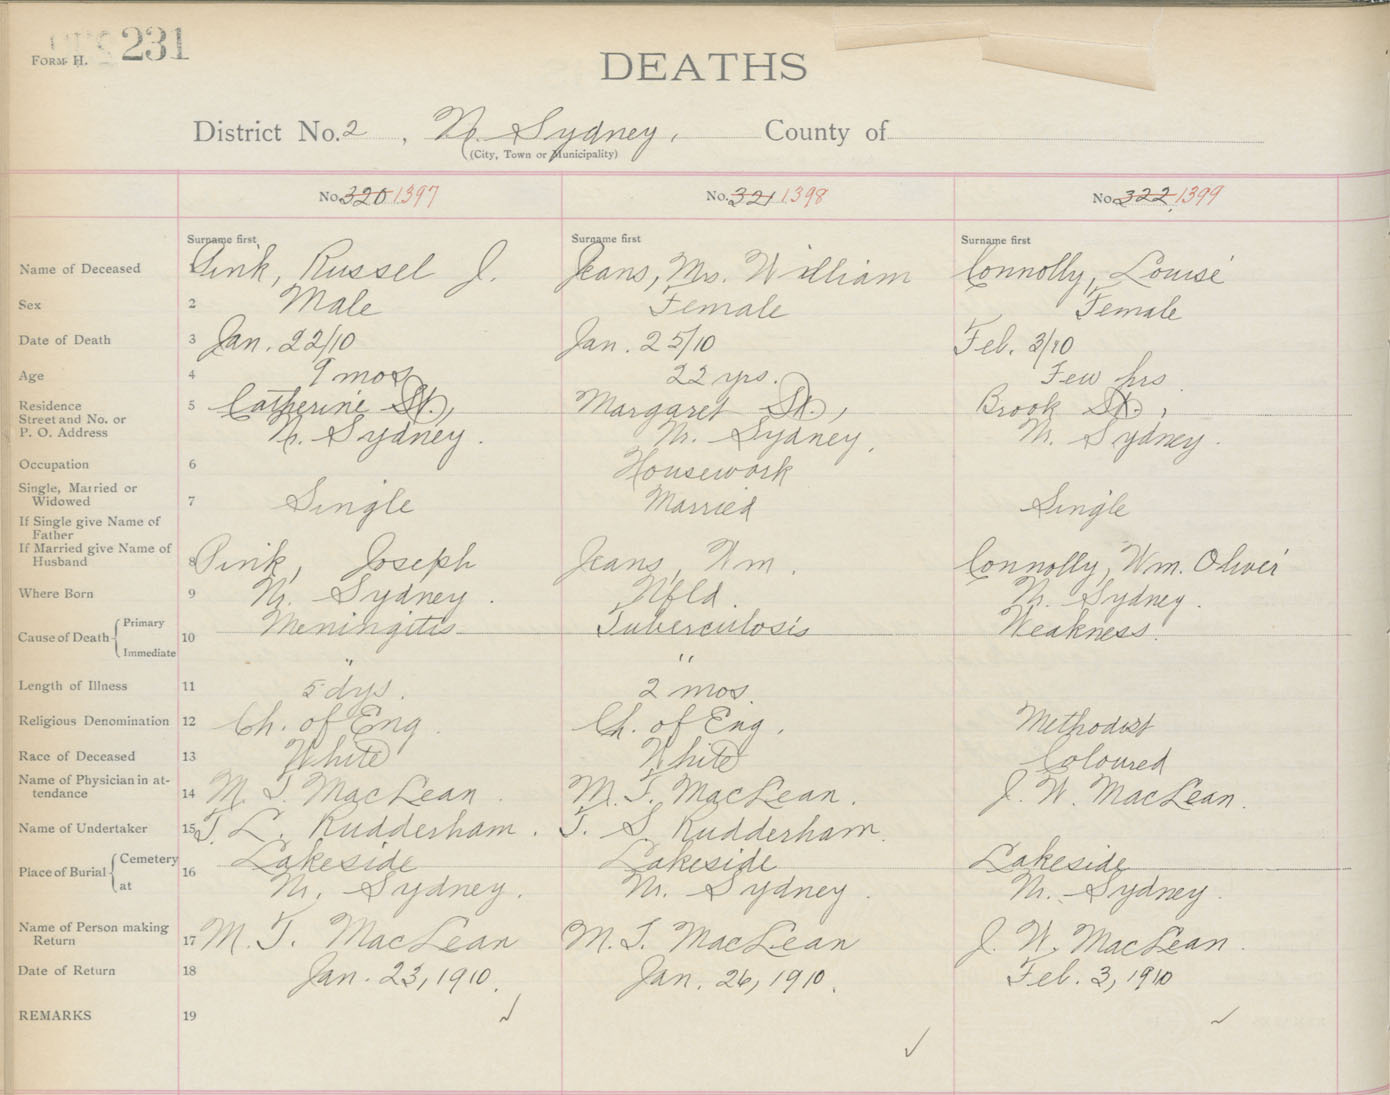 FORM H. 231
DEATHS
District No. 2, N. Sydney, County of
(City, Town or Municipality)
No. 320 1397 No. 321 1398 No. 322 1399
Surname first Surname first Surname first
Name of Deceased Pink, Russel J. Jeans, Mrs. William Connolly, Louise
Sex 2 Male Female Female
Date of Death 3 Jan. 22/10 Jan. 25/10 Feb. 3/10
Age 4 9 mos 22 yrs. Few hrs.
Residence 5 Catherine St., Margaret St., Brook St.,
Street and No. or
P. O. Address N. Sydney. N. Sydney. N. Sydney.
Occupation 6 Housework
Single, Married or
Widowed 7 Single Married Single
If Single give Name of
Father
If Married give Name of
Husband 8 Pink, Joseph Jeans, Wm. Connolly, Wm. Oliver
Where Born 9 N. Sydney. Nfld. N. Sydney.
Cause of Death { Primary 10 Meningitis Tuberculosis Weakness.
Immediate " "
Length of Illness 11 5 dys. 2 mos
Religious Denomination 12 Ch. of Eng. Ch. of Eng. Methodist
Race of Deceased 13 White White Coloured
Name of Physician in at-
tendance 14 M. T. MacLean. M. T. MacLean. J. W. MacLean.
Name of Undertaker 15 T. L. Rudderham. T. S. Rudderham.
Place of Burial { Cemetery 16 Lakeside Lakeside Lakeside
at N. Sydney. N. Sydney. N. Sydney.
Name of Person making
Return 17 M. T. MacLean M. T. MacLean J. W. MacLean.
Date of Return 18 Jan. 23, 1910. Jan. 26, 1910. Feb. 3, 1910
REMARKS 19 ✓ ✓ ✓